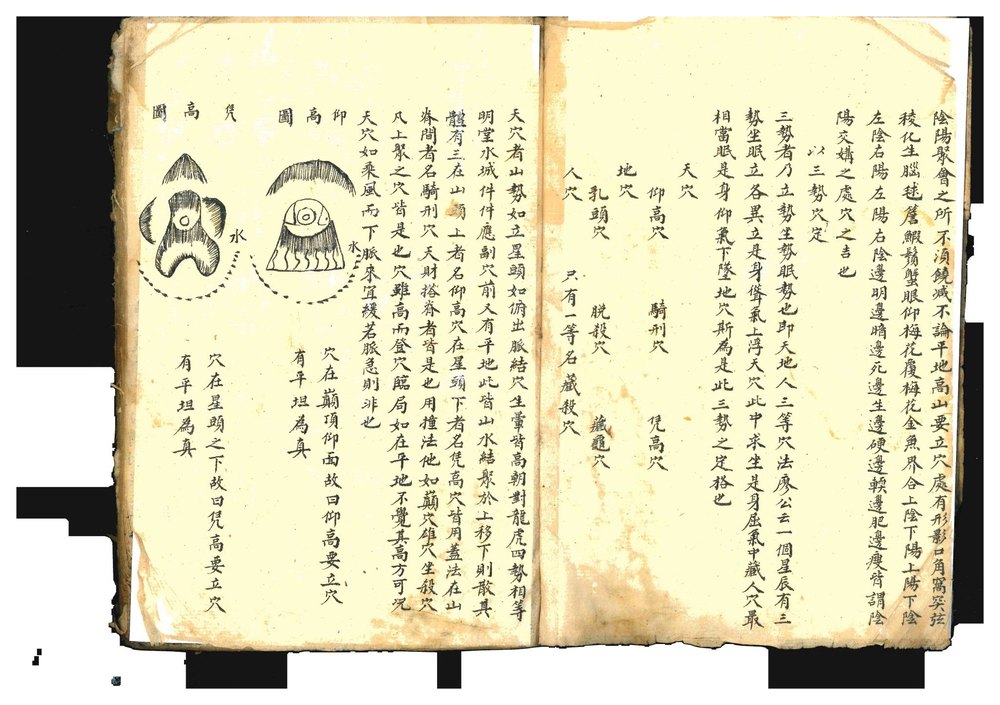 陰陽聚會之所不須饒减不論平地高山要立穴處有形影口角窩突弦
稜化生腦毬簷鰕鬚蟹眼仰梅花覆梅花金魚界合上陰下陽上陽下陰
左陰右陽左陽右陰邊明邊暗邊死邊生邊硬邊軟邊肥邊瘦皆謂陰
陽交媾之處穴之吉也
以三勢穴定
三勢者乃立勢坐勢眠勢也即天地人三等穴法廖公云一個星辰有三
勢坐眠立各異立是身聳氣上浮天穴此中求坐是身屈氣中藏人穴最
相當眠是身仰氣下墜地穴斯為是此三勢之定格也
天穴
仰高穴 騎刑穴 凭高穴
地穴
乳頭穴 脫殺穴 藏龜穴
人穴 只有一等名藏殺穴
天穴者山勢如立星頭如俯出脈結穴生暈皆高朝對龍虎四勢相等
明堂水城件件應副穴前又有平地此皆山水結聚於上移下則散其
體有三在山頭上者名仰高穴在星頭下者名凭高穴皆用盖法在山
脊間者名騎刑穴天財搭脊者皆是也用撞法他如巔穴雄穴坐殺穴
凡上聚之穴皆是也穴雖高而登穴臨局如在平地不覺其高方可况
天穴如乘風而下脈來宜緩若脈急則非也
仰高圖
水
穴在巔頂仰面故曰仰高要立穴
有平坦為真
凭高圖
水
穴在星頭之下故曰凭高要立穴
有平坦為真